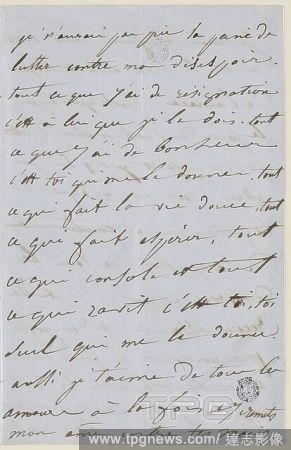 je n'aurais pas pris la peine de
lutter contre mon désespoir.
tout ce que j'ai de résignation
c'est à lui que je le dois. tout
ce que j'ai de bonheur
c'est toi qui me le donnes. tout
ce qui fait la vie douce, tout
ce qui fait espérer, tout
ce qui console et tout
ce qui ravit c'est toi, toi
seul qui me le donnes
aussi je t'aime de tous les
amours à la fois et remets
mon âme entre tes
TPG
www.tpgnews.com 達志影像